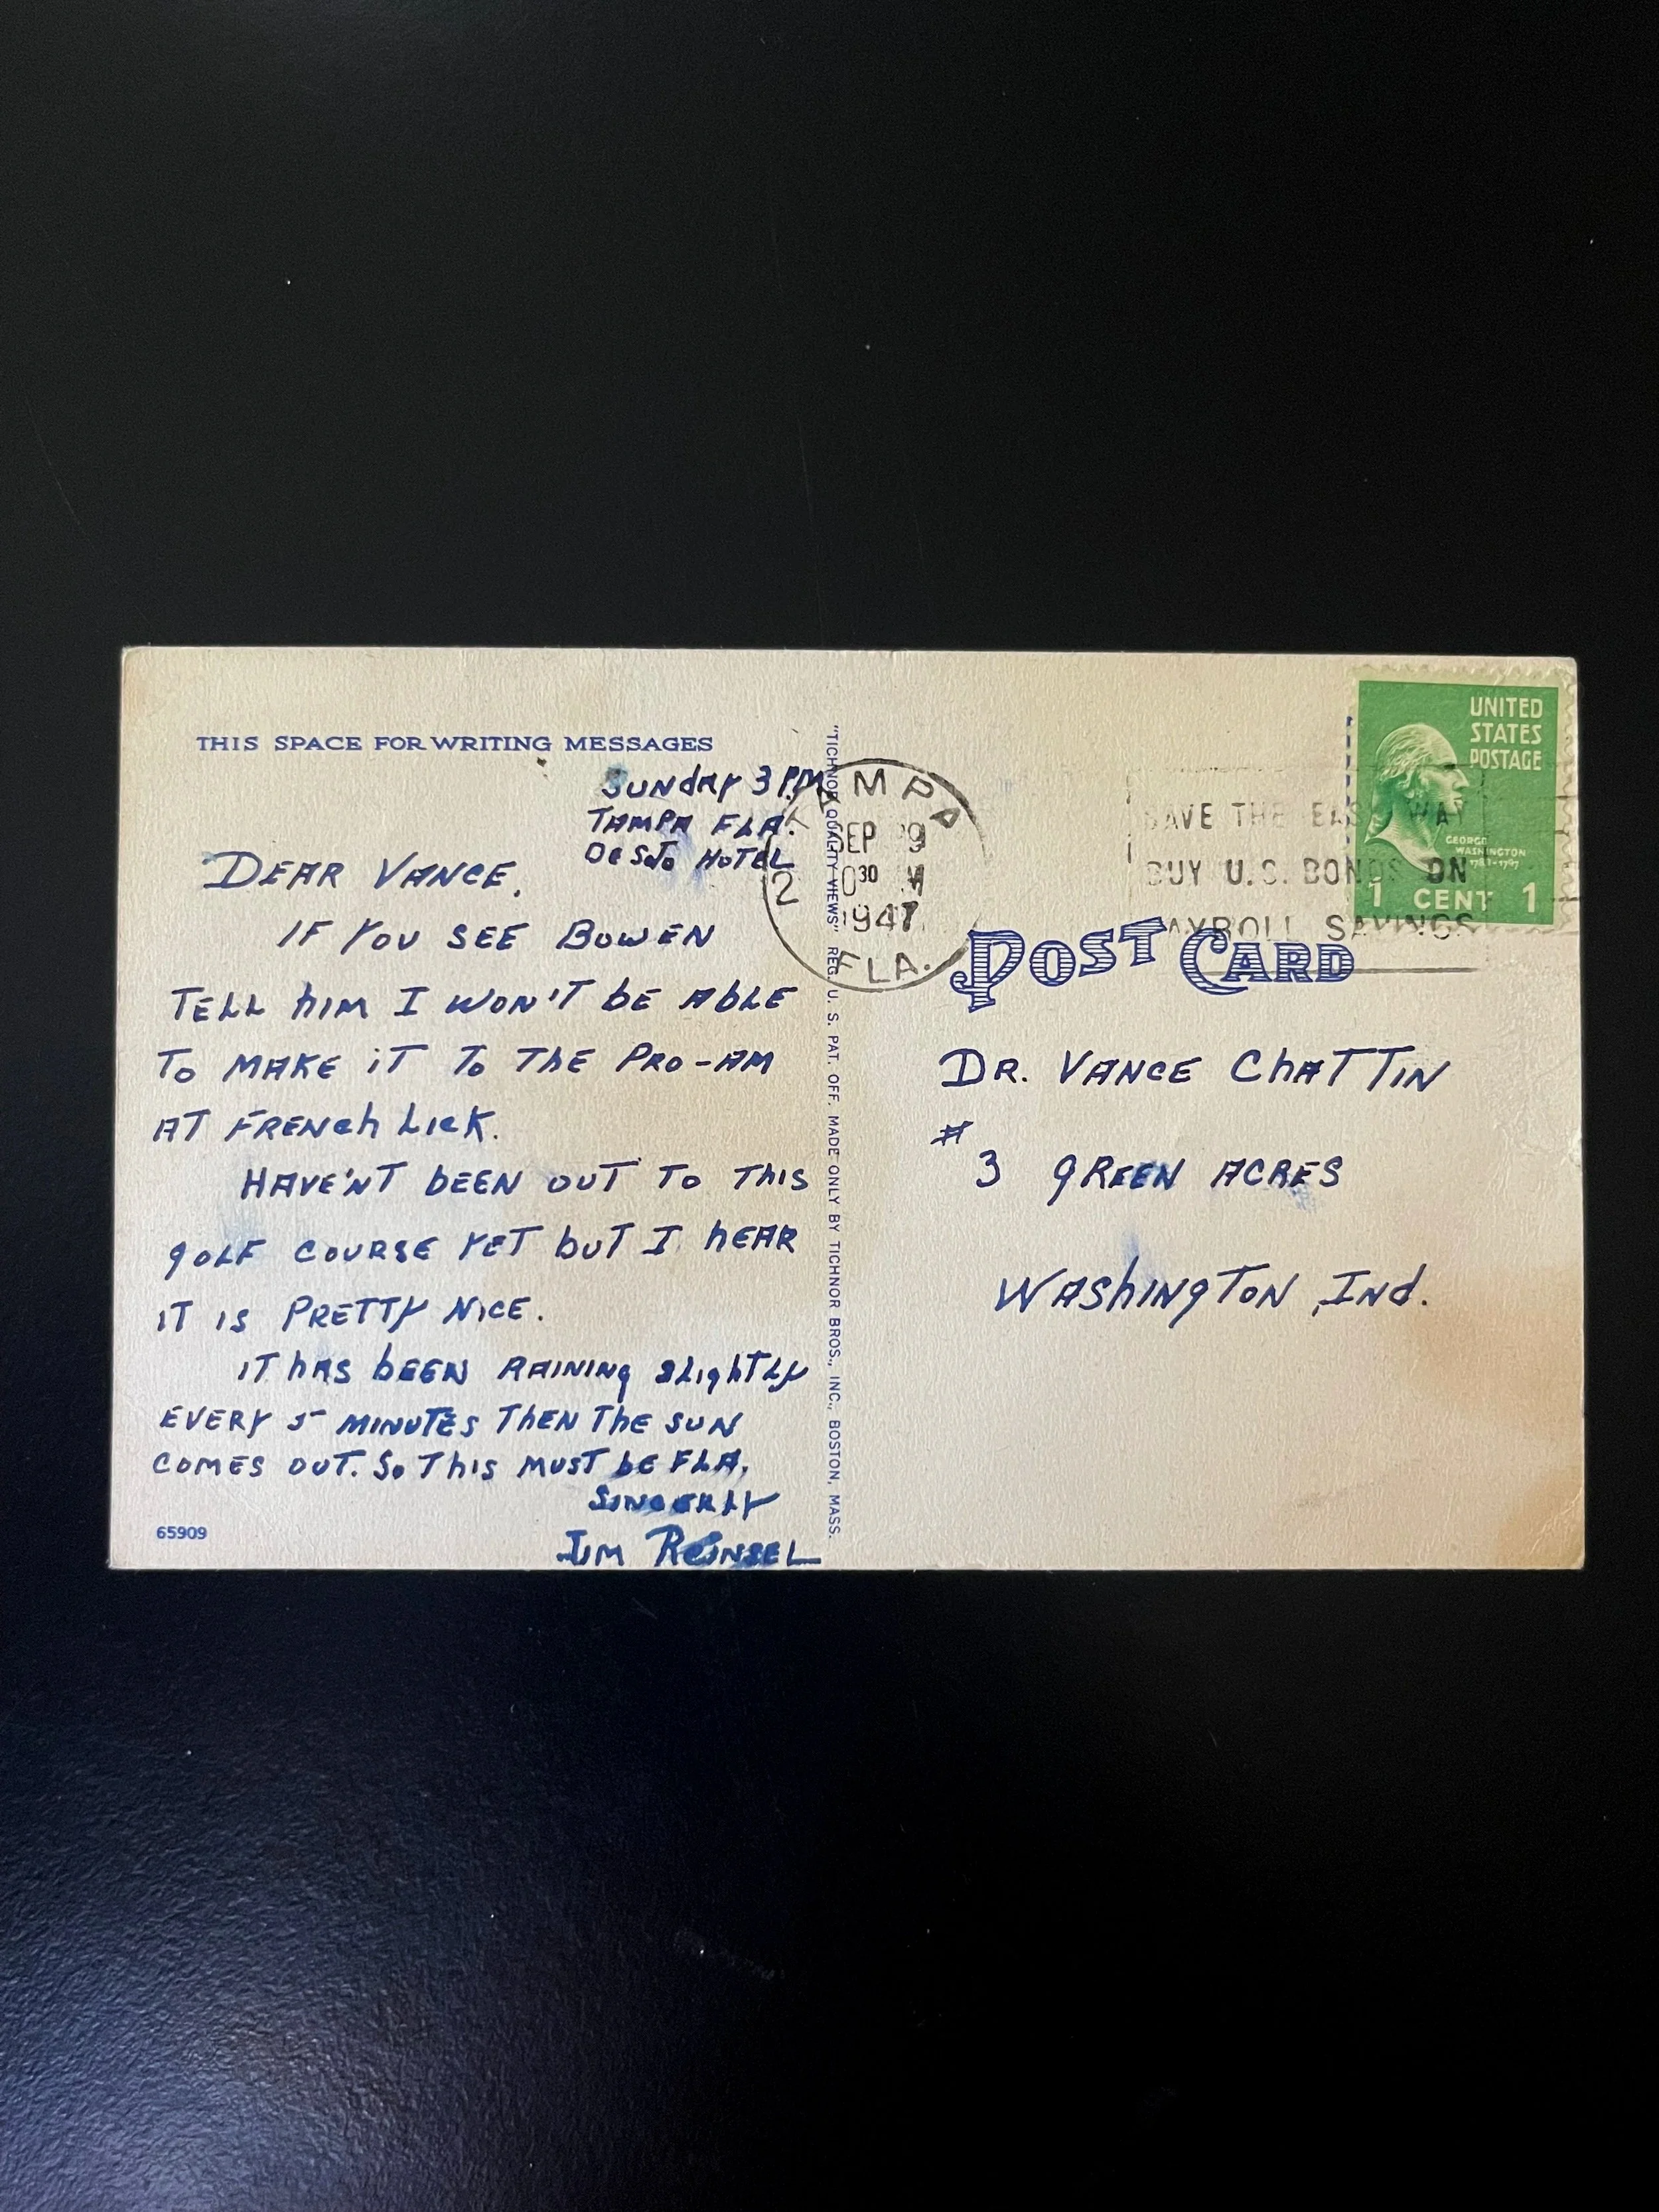 THIS SPACE FOR WRITING MESSAGES
SUNDAY 3 P.M.
TAMPA FLA.
DESOTO HOTEL
DEAR VANCE,
IF YOU SEE BOWEN
TELL hIM I WON'T bE AbLE
TO MAKE iT TO ThE PRO-AM
AT FRENCh LICK.
HAVE'NT bEEN OUT TO ThIS
gOLF COURSE YET bUT I hEAR
IT IS PRETTY NICE.
IT hAS bEEN RAINING SLIghTLY
EVERY 5 MINUTES ThEN ThE SUN
COMES OUT. SO ThIS MUST bE FLA.
SINCERLY
JIM REINSEL
65909
"TICHNOR QUALITY VIEWS" REG. U. S. PAT. OFF. MADE ONLY BY TICHNOR BROS., INC., BOSTON, MASS.
TAMPA
SEP 9
2
30 M
1947
FLA.
SAVE THE EASY WAY
BUY U.S. BONDS ON
PAYROLL SAVINGS
UNITED
STATES
POSTAGE
GEORGE
WASHINGTON
1789-1797
1 CENT 1
POST CARD
DR. VANCE ChATTIN
#3 gREEN ACRES
WAShINgTON, INd.